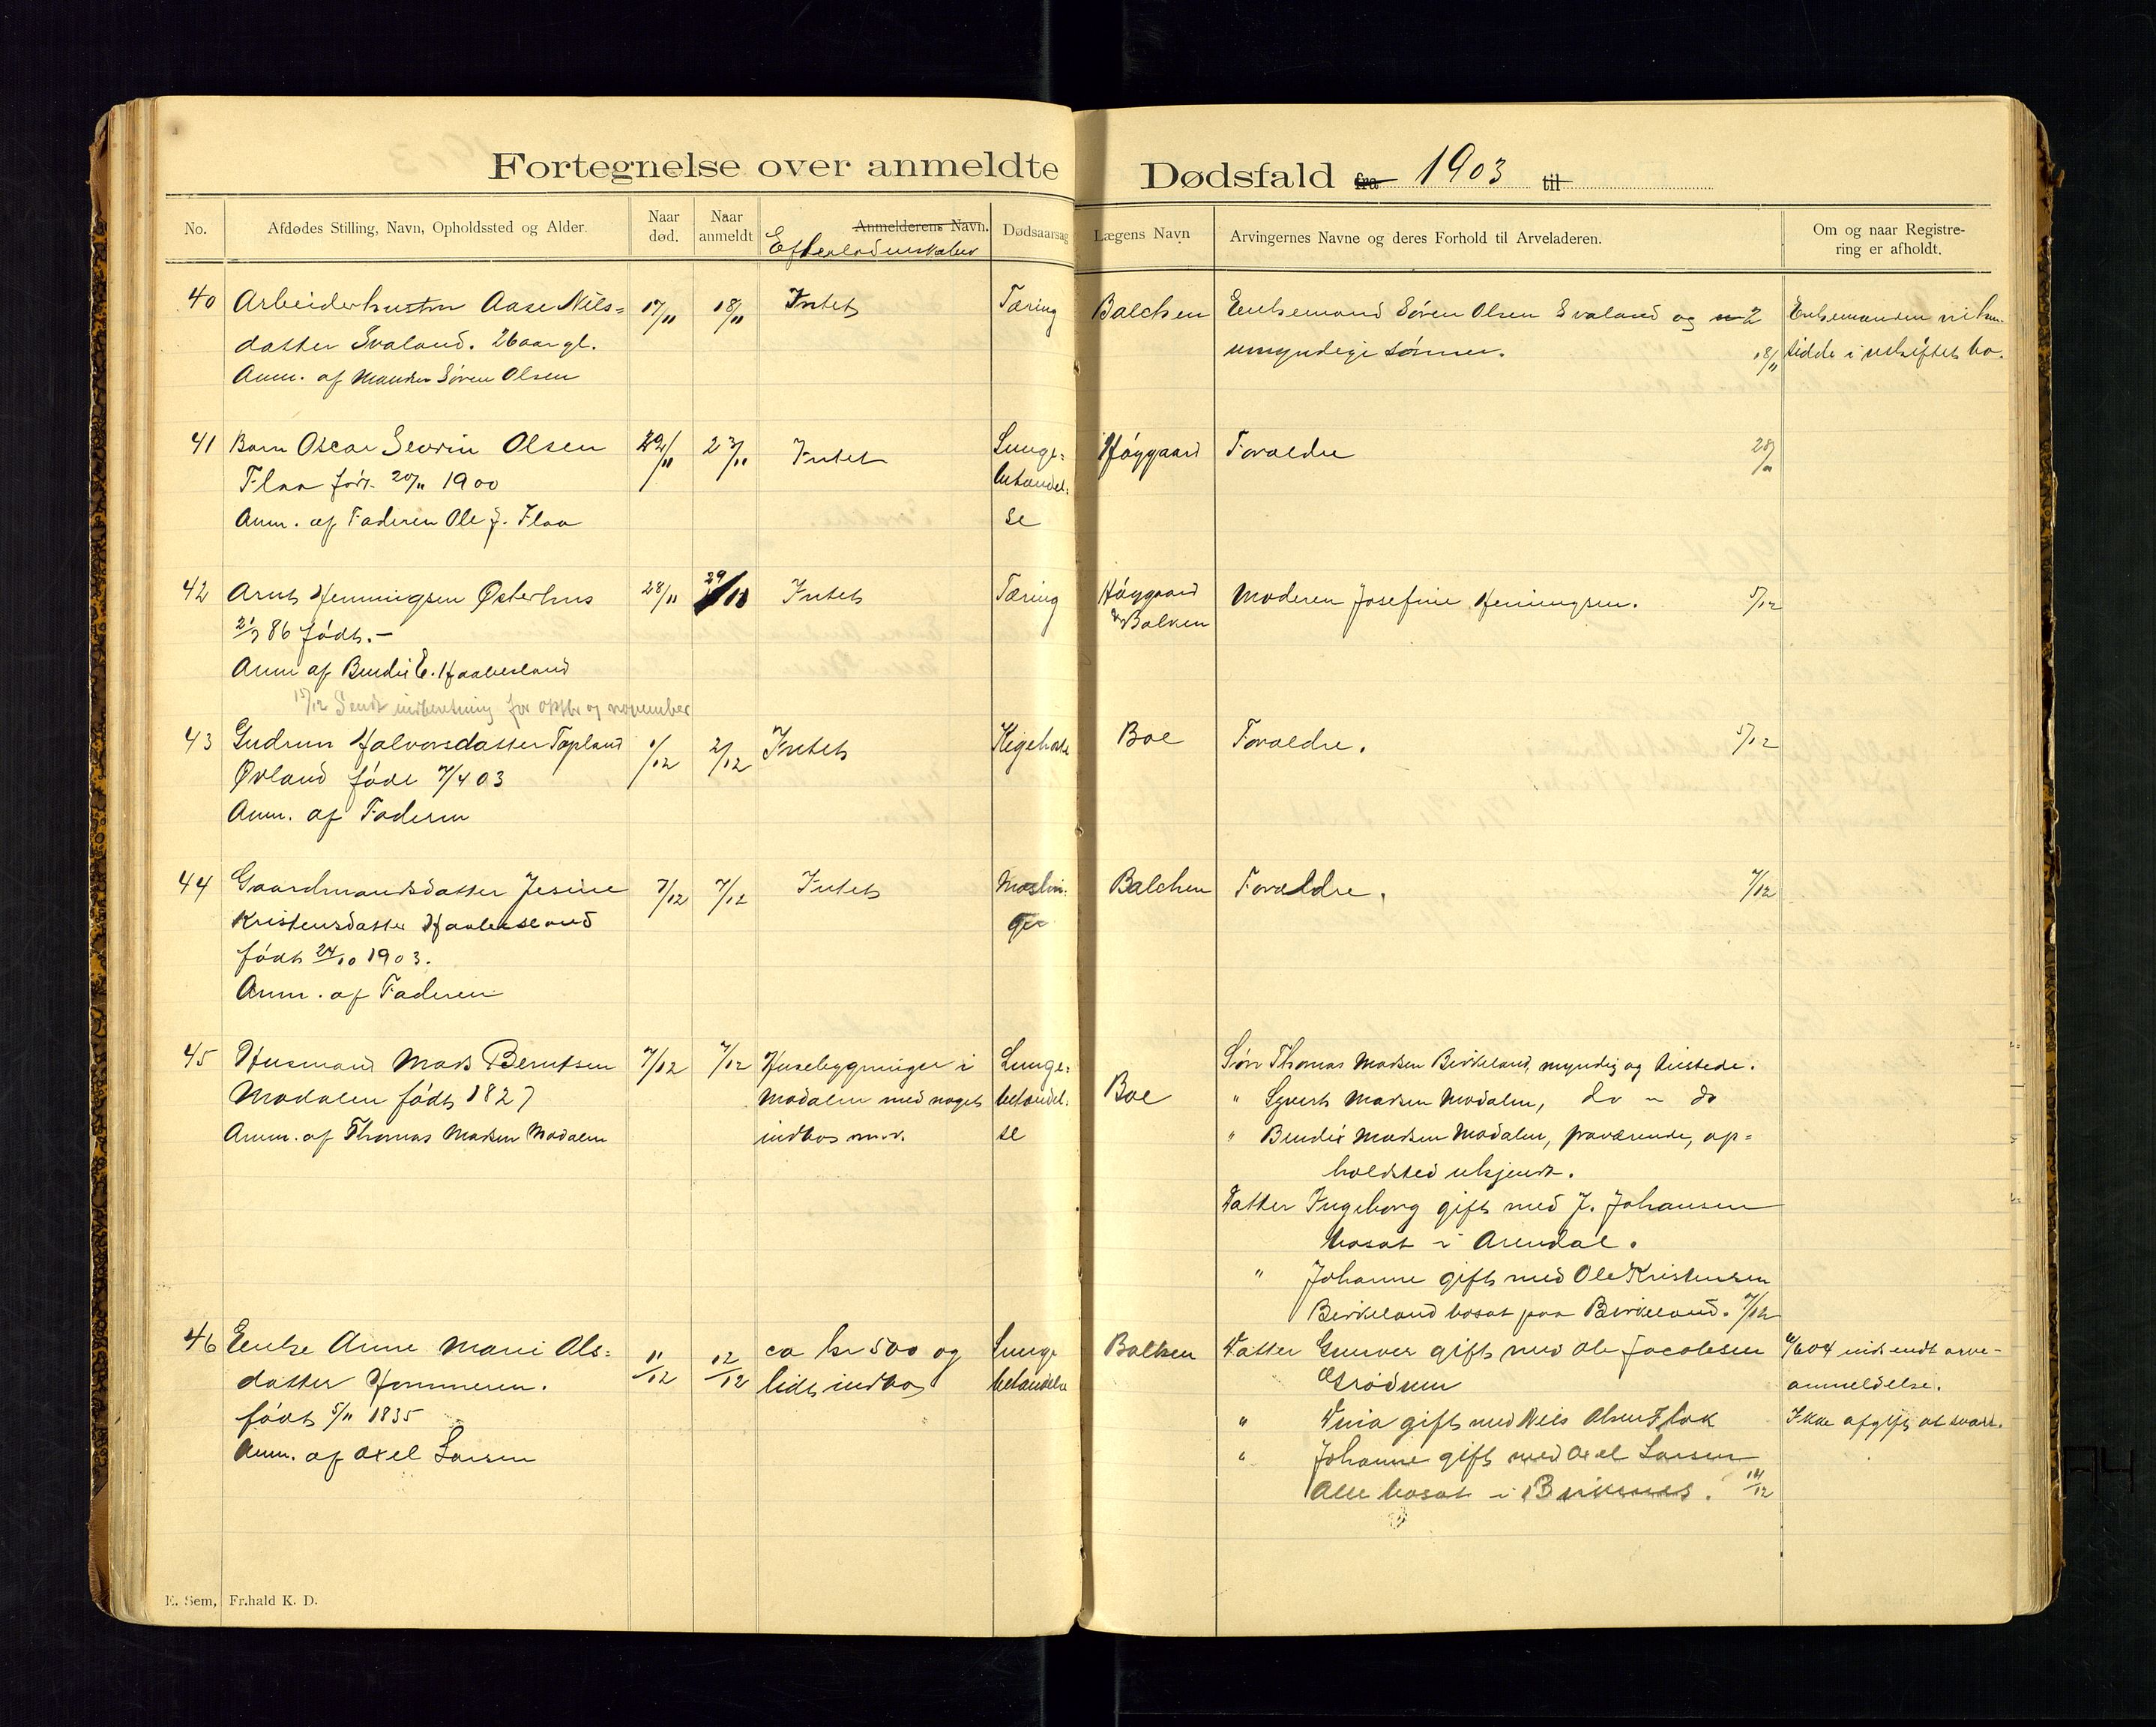 Fortegnelse over anmeldte Dødsfald fra 1903 til
No.
Afdødes Stilling, Navn, Opholdssted og Alder.
Naar død.
Naar anmeldt
Anmelderens Navn.
Efterladenskaber
Dødsaarsag
Lægens Navn
Arvingernes Navne og deres Forhold til Arveladeren.
Om og naar Registre-
ring er afholdt.
40 Arbeiderhustru Aase Nils= 17/11 18/11 Intet Tæring Balchen Enkemand Søren Olsen Svaland og 2 Enkemanden vil hen-
datter Svaland. 26 aar gl. umyndige sønner. 18/11 sidde i uskiftet bo.
Anm. af Manden Søren Olsen
41 Barn Oscar Severin Olsen 22/11 23/11 Intet Lunge= Høygaard Forældre 28/11
Flaa født 20/11 1900 betændel=
Anm. af Faderen Ole J. Flaa se
42 Arnt Henningsen Østerhus 28/11 29/11 Intet Tæring Høygaard Moderen Josefine Henningsen. 5/12
21/7 86 født.- & Balken
Anm af Bendix E. Haabesland
15/12 Sendt indberetning for oktbr og november
43 Gudrun Halvorsdatter Topland 1/12 2/12 Intet Kighoste Boe Forældre. 5/12
Øvland føde 7/4 03
Anm. af Faderen
44 Gaardmandsdatter Jesine 7/12 7/12 Intet Mæslin= Balchen Forældre. 7/12
Kristensdatter Haabesland ger
født 24/10 1903.
Anm. af Faderen
45 Husmand Mads Berntsen 7/12 7/12 Husebygninger i Lunge= Boe Søn Thomas Madsen Birkeland, myndig og tilstede.
Modalen født 1827 Modalen med noget betændel= " Syvert Madsen Modalen, do " do
Anm. af Thomas Madsen Modalen indbo m.v. se " Bendix Madsen Modalen, fraværende, op=
holdsted ukjendt.
Datter Ingeborg gift med J. Johansen
bosat i Arendal.
" Johanne gift med Ole Kristensen
Birkeland bosat paa Birkeland. 7/12
46 Enke Anne Marie Ols= 11/12 12/12 ca kr 500 og Lunge Balken Datter Gunver gift med Ole Jacobsen 6/6 04 indsendt arve-
datter Hommeren. lidt indbo betændelse Grødum anmeldelse.
født 5/11 1835 " gift med Nils Olsen Flak Ikke afgift at svare.
Anm. af Axel Larsen " Johanne gift med Axel Larsen
Alle bosat i Birkenes. 12/12
E. Sem, Fr.hald K. D.